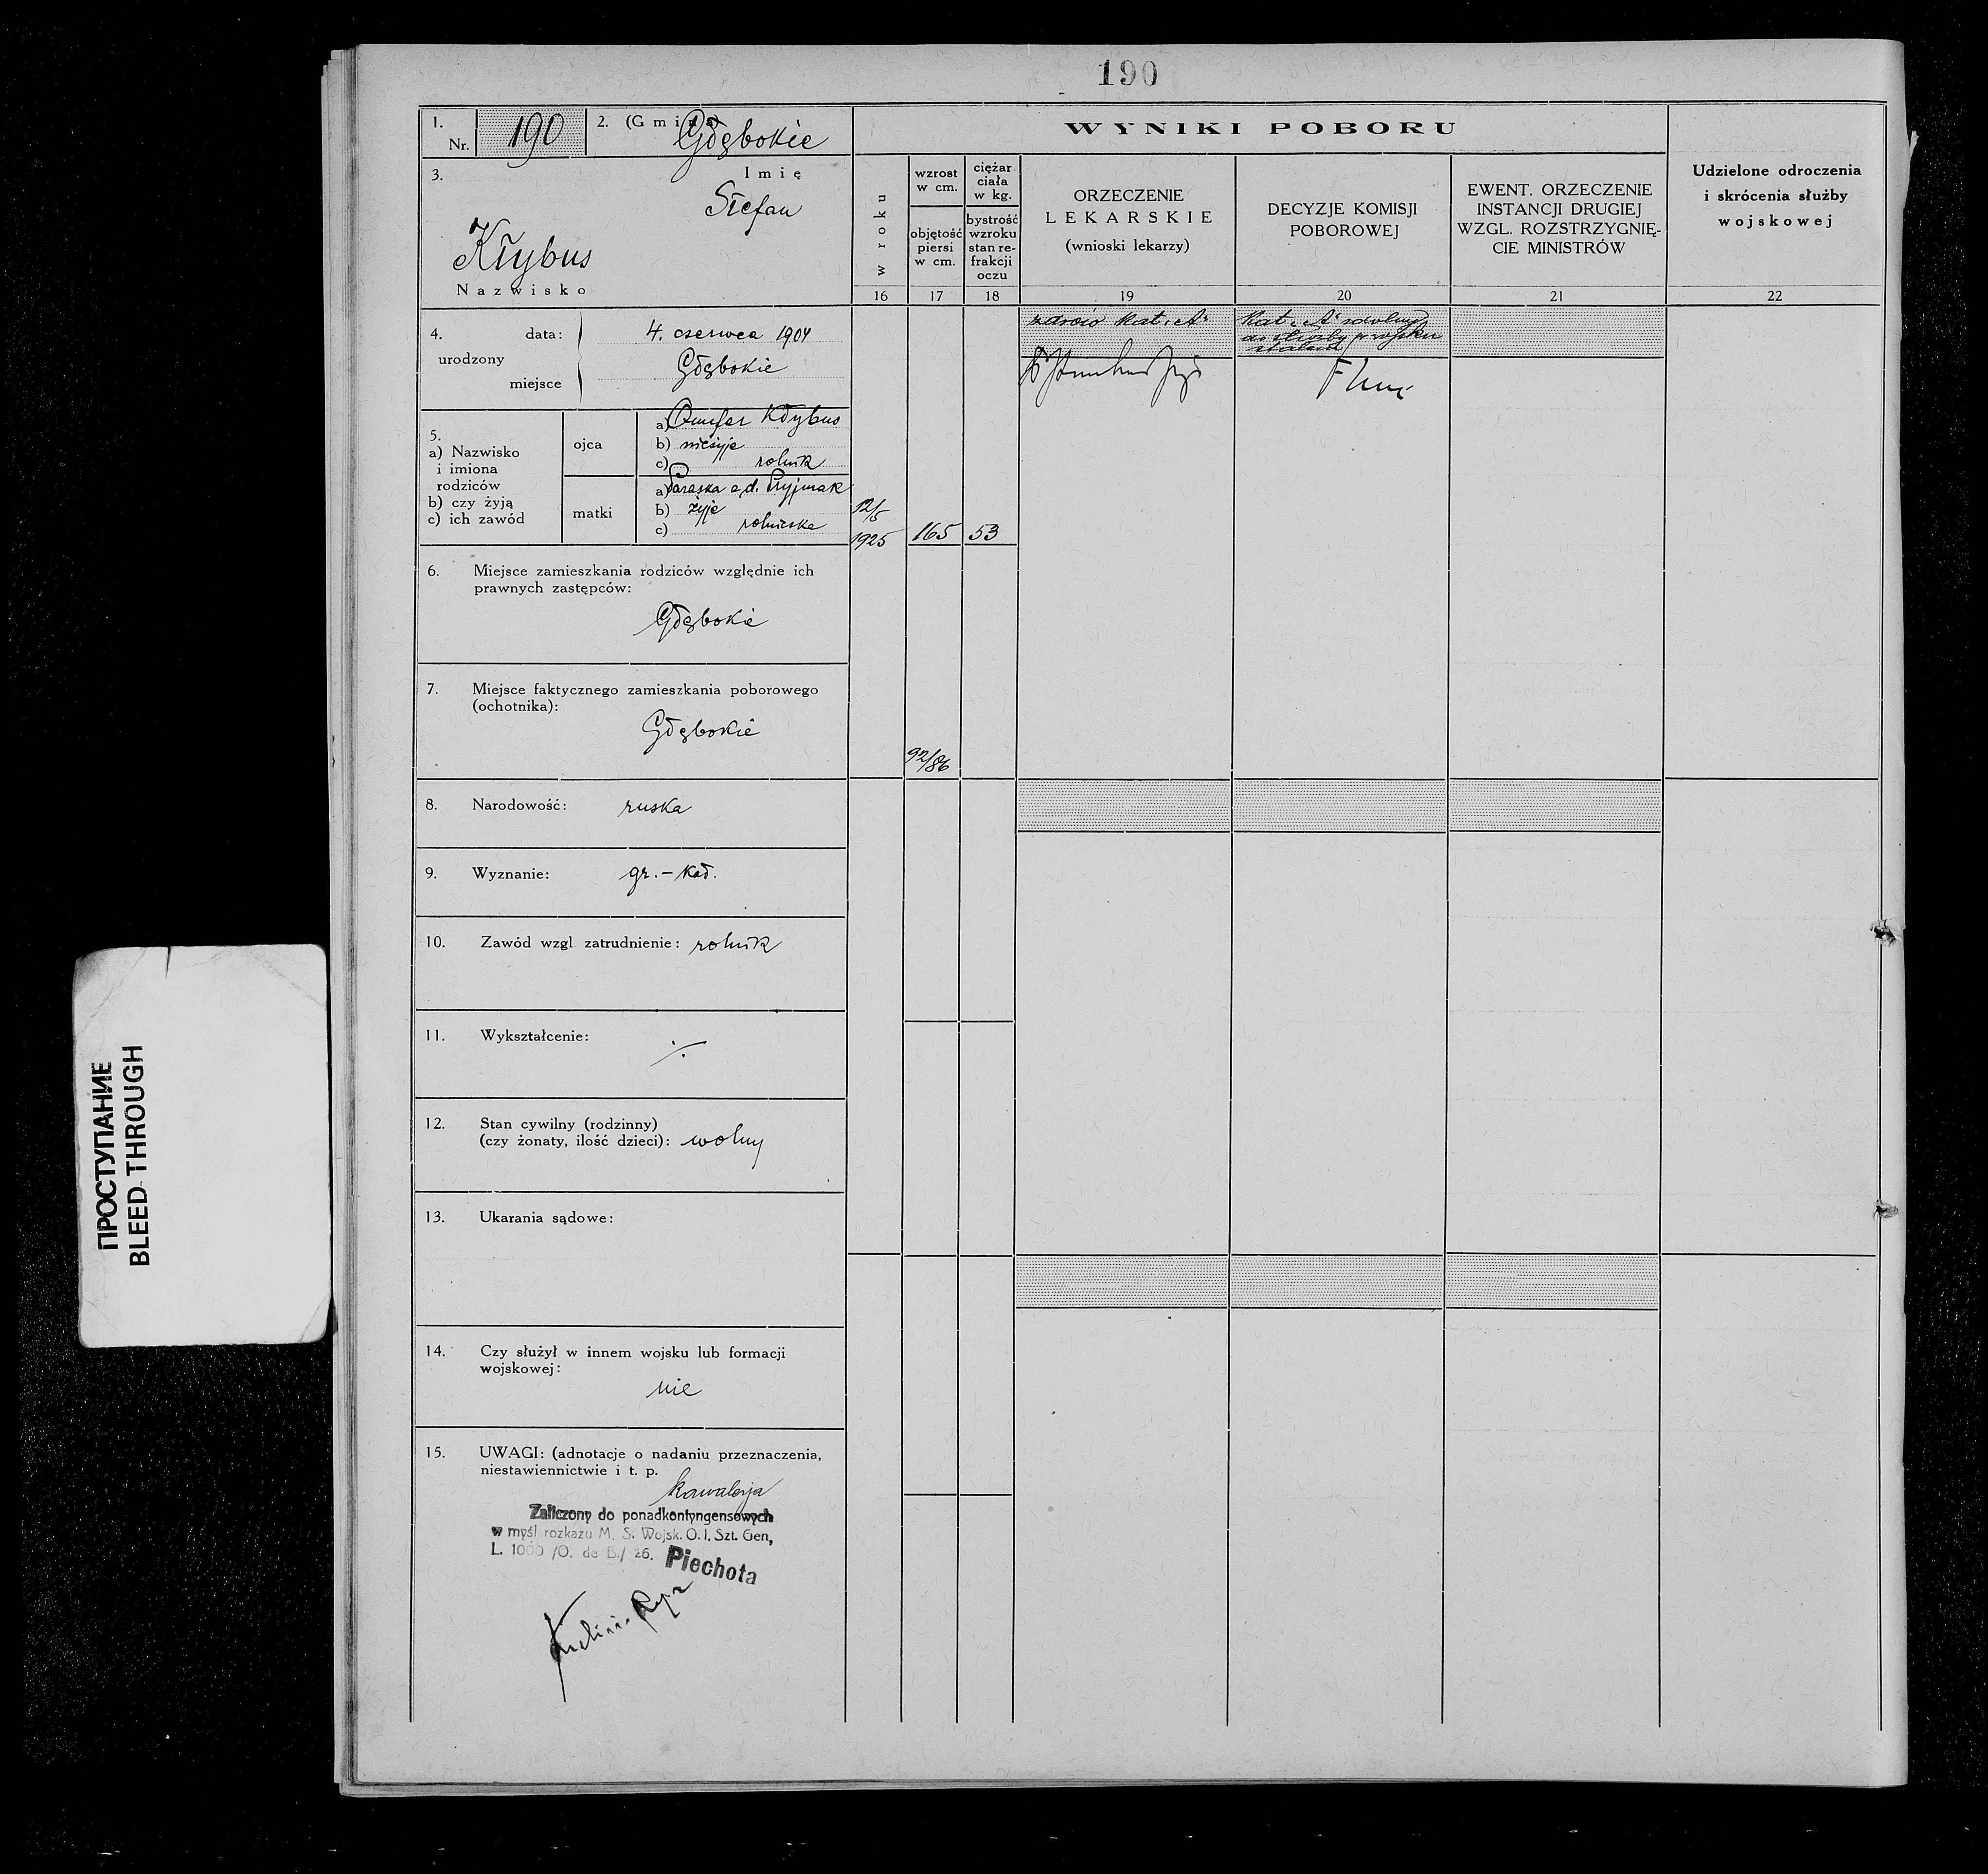 190
1.
Nr. 190
2. (Gmina) Głębokie
3.
Imię
Stefan
Kłybus
Nazwisko
4.
urodzony
data: 4. czerwca 1904
miejsce Głębokie
5.
a) Nazwisko
i imiona
rodziców
b) czy żyją
c) ich zawód
ojca
a) Kłybus
b) nieżyje
c) rolnik
matki
a) Paraska z d. Pryjmak
b) żyje
c) rolniczka
6. Miejsce zamieszkania rodziców względnie ich
prawnych zastępców:
Głębokie
7. Miejsce faktycznego zamieszkania poborowego
(ochotnika):
Głębokie
8. Narodowość: ruska
9. Wyznanie: gr.-kat.
10. Zawód wzgl. zatrudnienie: rolnik
11. Wykształcenie: ·/·
12. Stan cywilny (rodzinny)
(czy żonaty, ilość dzieci): wolny
13. Ukarania sądowe:
14. Czy służył w innem wojsku lub formacji
wojskowej:
nie
15. UWAGI: (adnotacje o nadaniu przeznaczenia,
niestawiennictwie i t. p.
kawalerja
Zaliczony do ponadkontyngensowych
w myśl rozkazu M. S. Wojsk. O. I. Szt. Gen,
L. 1000 /O. de B./ 26. Piechota
WYNIKI POBORU
w roku
wzrost
w cm.
objętość
piersi
w cm.
ciężar
ciała
w kg.
bystrość
wzroku
stan re-
frakcji
oczu
ORZECZENIE
LEKARSKIE
(wnioski lekarzy)
DECYZJE KOMISJI
POBOROWEJ
EWENT. ORZECZENIE
INSTANCJI DRUGIEJ
WZGL. ROZSTRZYGNIĘ-
CIE MINISTRÓW
Udzielone odroczenia
i skrócenia służby
wojskowej
16 17 18 19 20 21 22
kat. "A"
Kat. "A" zdolny
do służby w wojsku
stałem
12/5
1925 165 53
92/86
ПРОСТУПАНИЕ
BLEED-THROUGH